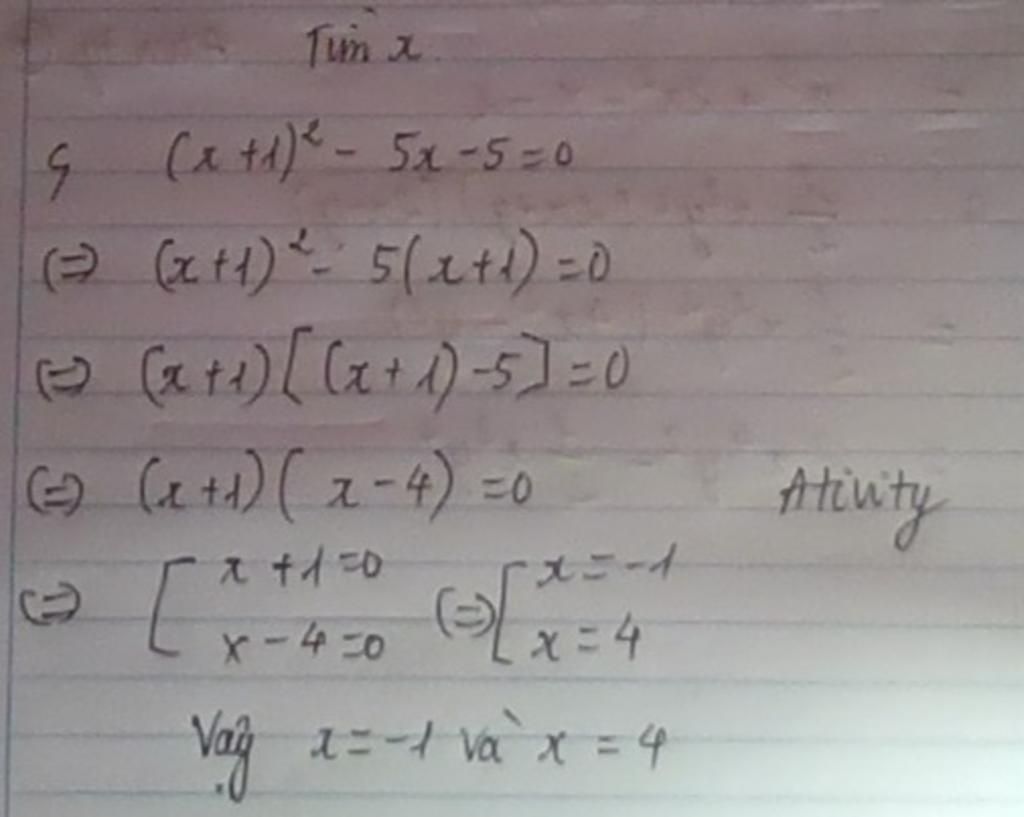 Tìm x
(x+1)² - 5x - 5 = 0
(=) (x+1)² - 5(x+1) = 0
(=) (x+1)[(x+1)-5] = 0
(=) (x+1)(x-4) = 0 Ativity
(=) [ x+1=0 (=) [ x=-1
x-4=0 x=4
Vậy x=-1 và x=4